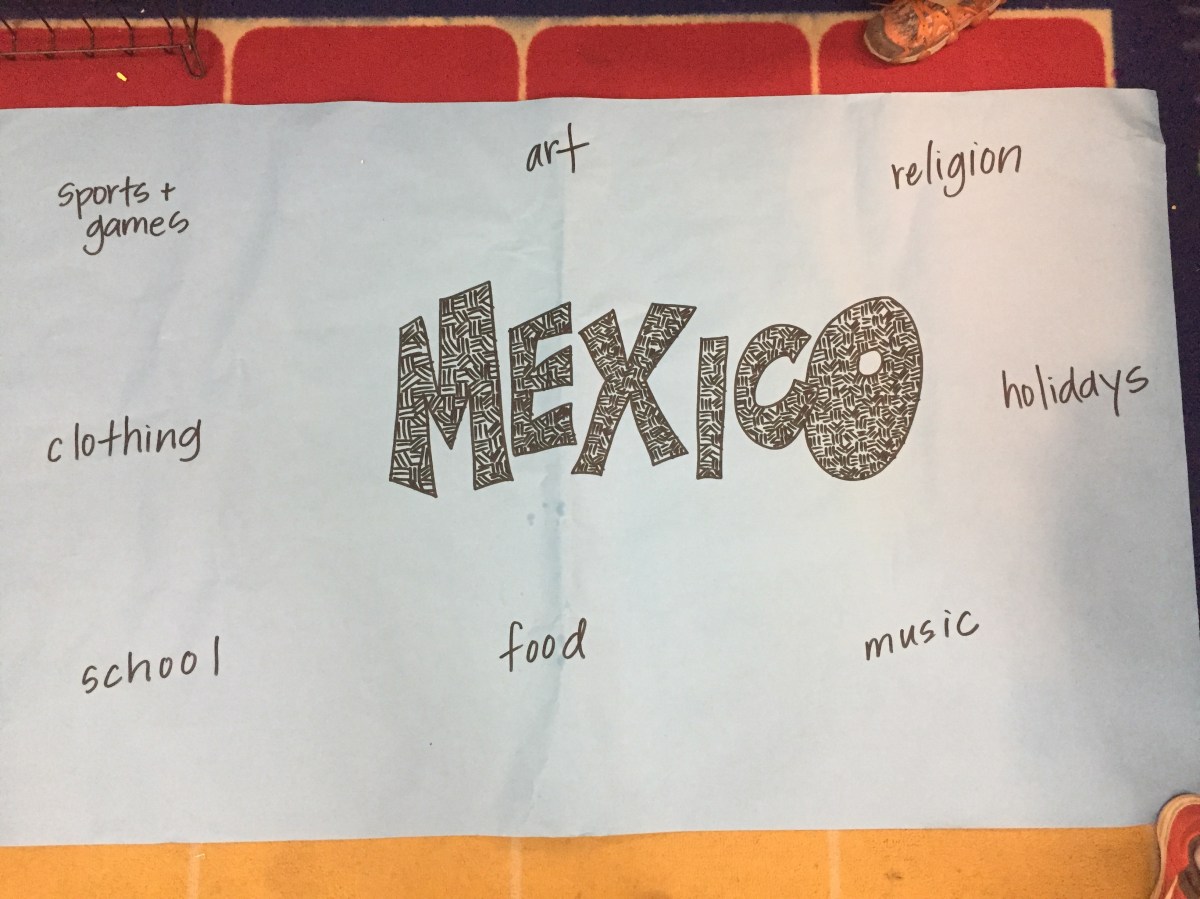 art
religion
sports +
games
MEXICO
holidays
clothing
school
food
music